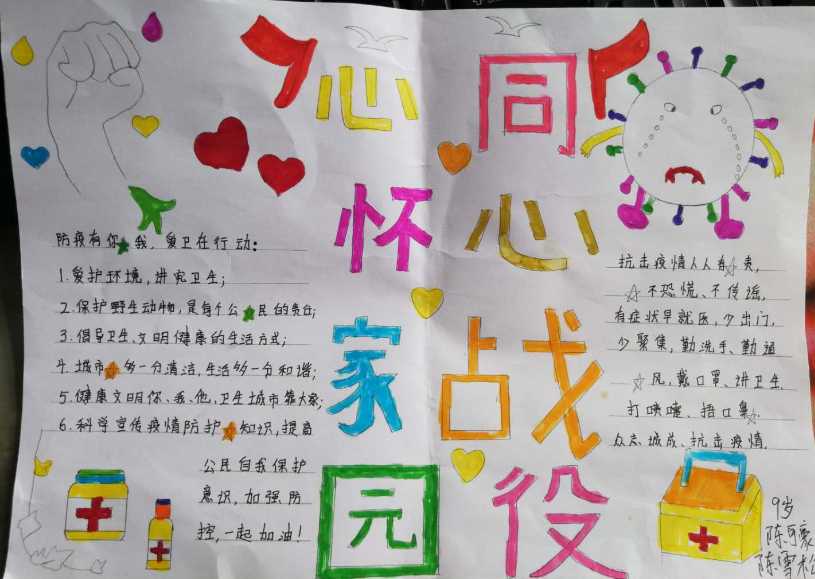 同心战役
心怀家园
防疫有你我,爱卫在行动:
1.爱护环境,讲究卫生;
2.保护野生动物,是每个公民的责任;
3.倡导卫生、文明健康的生活方式;
4.城市多一分清洁,生活多一分和谐;
5.健康文明你、我、他,卫生城市靠大家;
6.科学宣传疫情防护知识,提高
公民自我保护
意识,加强防
控,一起加油!
抗击疫情人人有责,
不恐慌、不传谣,
有症状早就医,少出门,
少聚集,勤洗手、勤通
风,戴口罩、讲卫生.
打喷嚏、捂口鼻.
众志城成、抗击疫情.
9岁
陈雪松